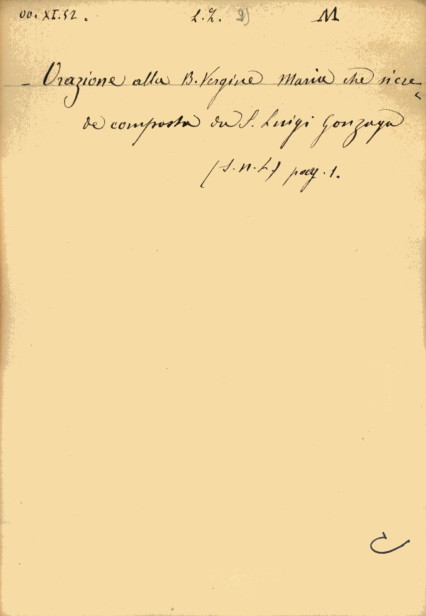 OO. XI. 52. L. Z. 9) M
– Orazione alla B. Vergine Maria che si cre=
de composta da S. Luigi Gonzaga
(S. n. t.) pag. 1.
C